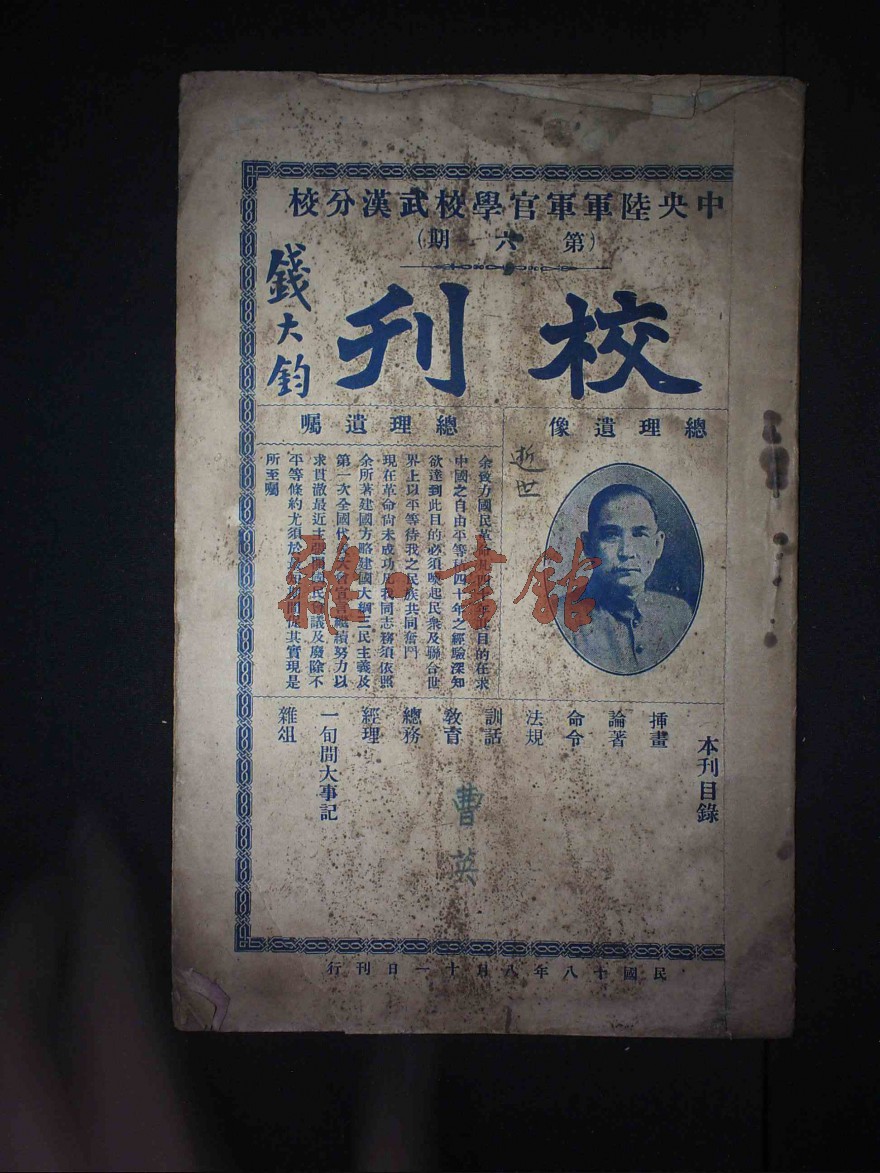 中央陸軍軍官學校武漢分校
(第六期)
校刊
錢大鈞
總理遺像
總理遺囑
逝世
余致力國民革命凡四十年其目的在求
中國之自由平等積四十年之經驗深知
欲達到此目的必須喚起民衆及聯合世
界上以平等待我之民族共同奮鬥
現在革命尚未成功凡我同志務須依照
余所著建國方略建國大綱三民主義及
第一次全國代表大會宣言繼續努力以
求貫澈最近主張開國民會議及廢除不
平等條約尤須於最短期間促其實現是
所至囑
本刊目錄
插畫
論著
命令
法規
訓話
教育
總務
經理
一旬間大事記
雜俎
曹英
民國十八年八月十一日刊行